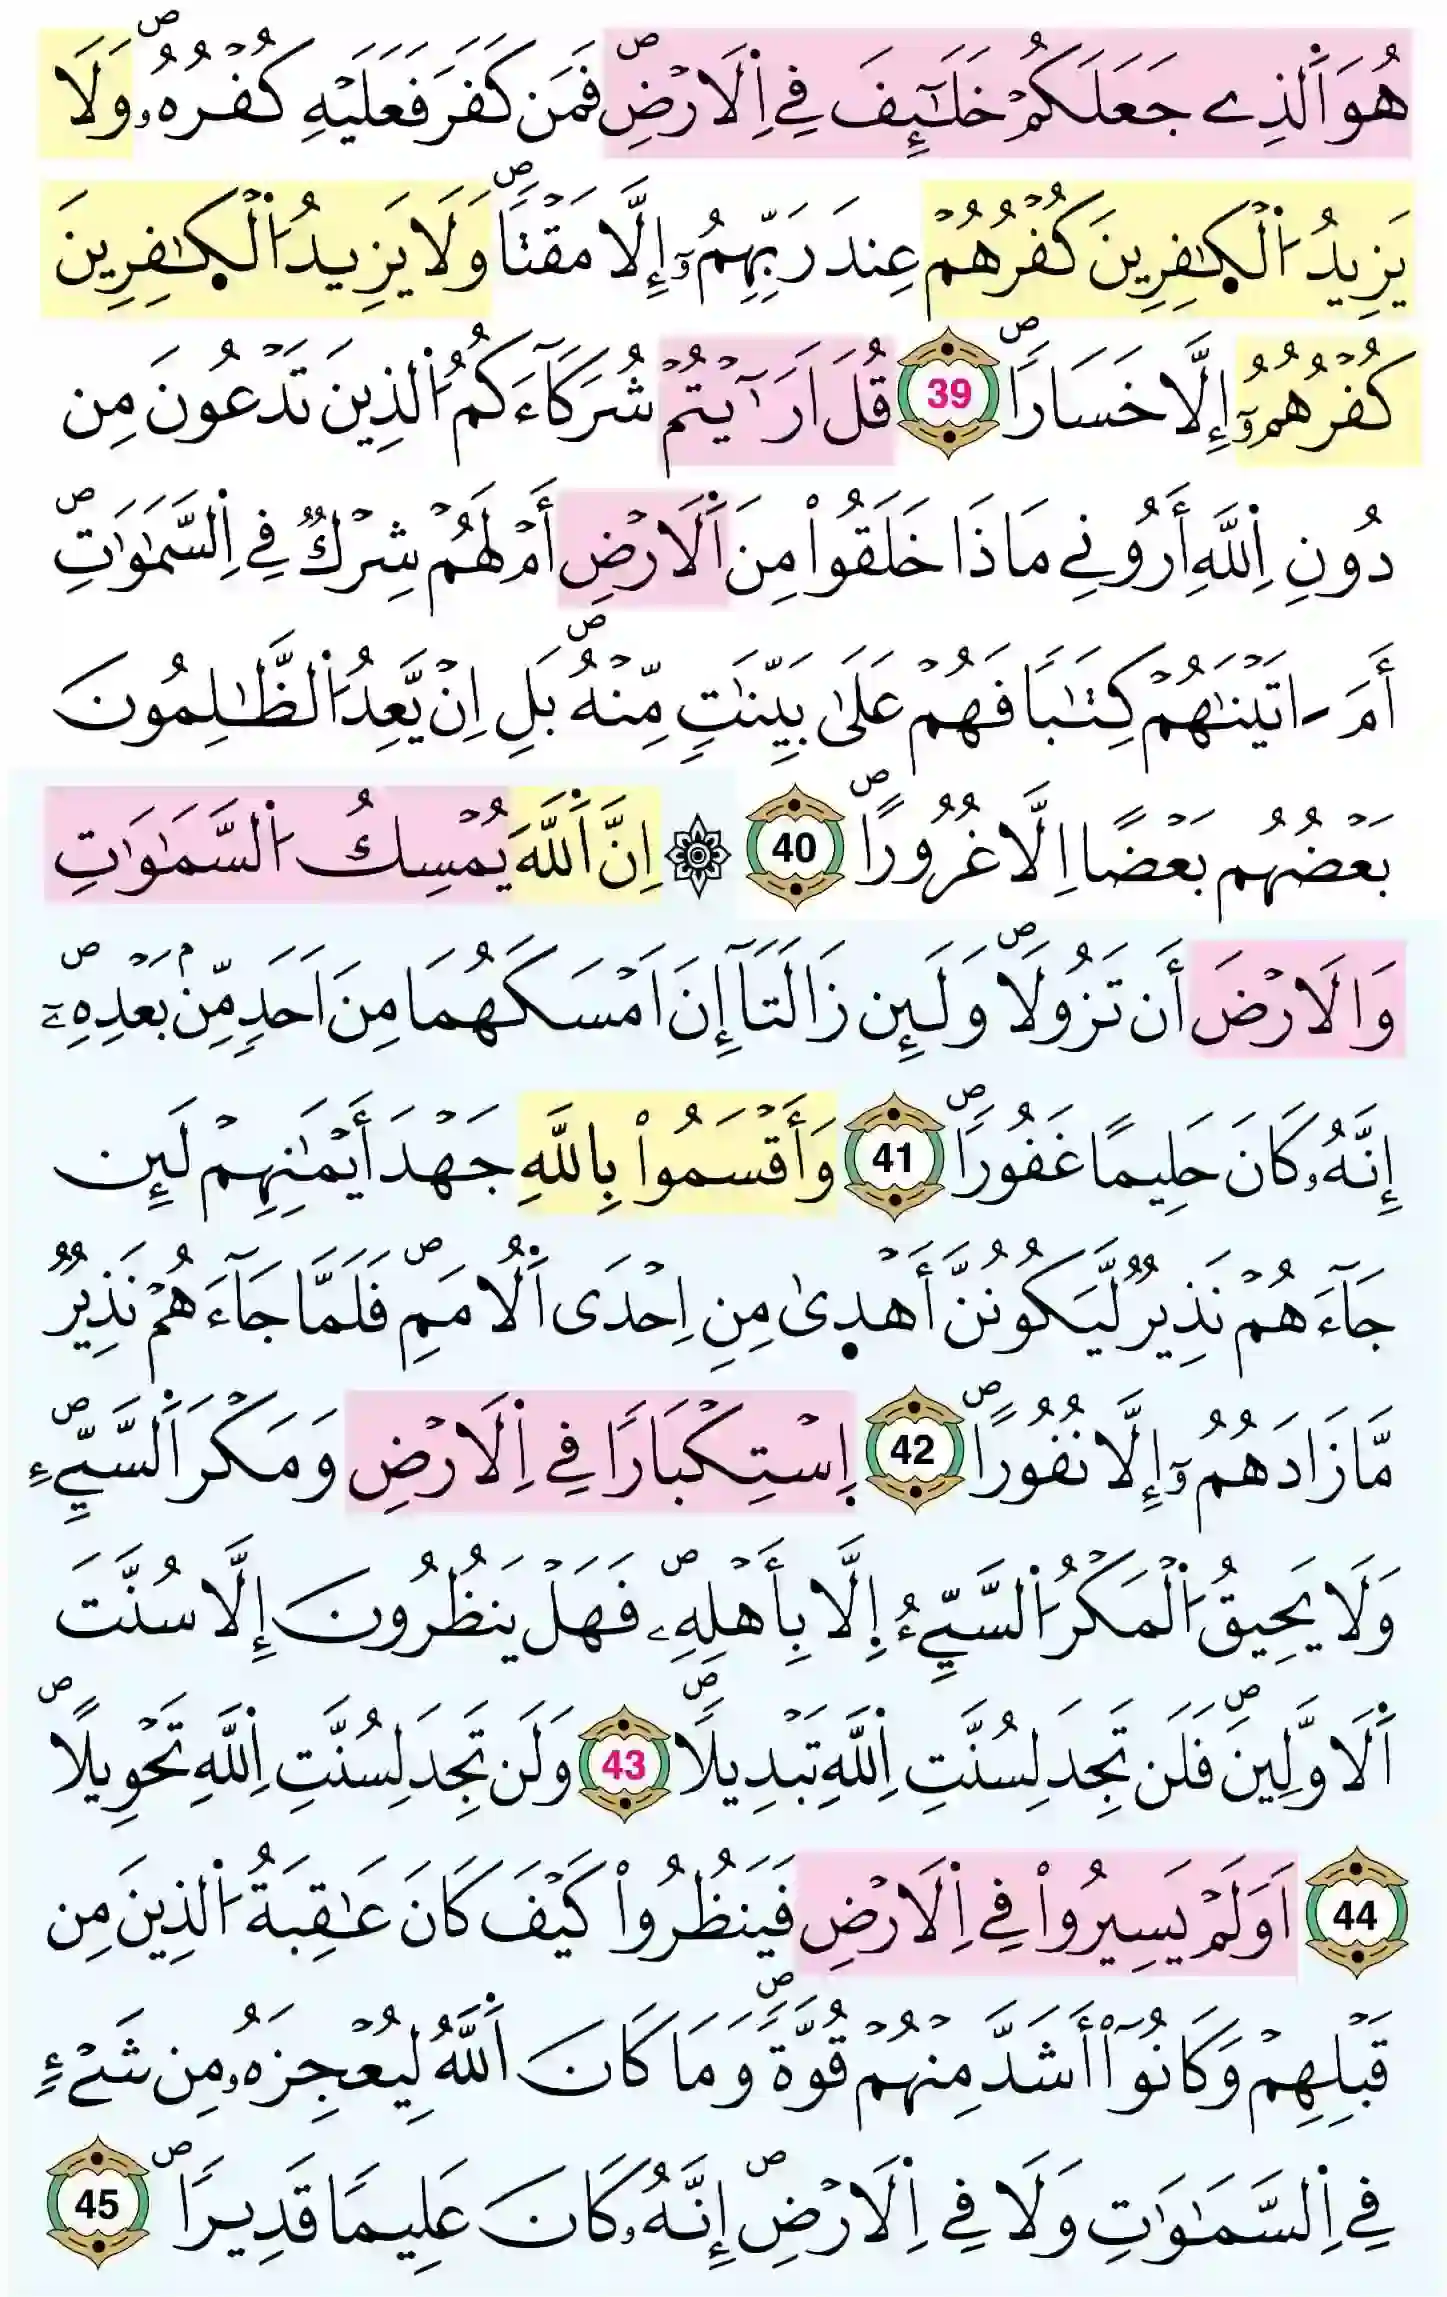 هُوَ اَ۬لذِے جَعَلَكُمْ خَلَٰٓئِفَ فِے اِ۬لَارْضِۖ فَمَن كَفَرَ فَعَلَيْهِ كُفْرُهُۥۖ وَلَا
يَزِيدُ اُ۬لْكٰ۪فِرِينَ كُفْرُهُمْ عِندَ رَبِّهِمُۥٓ إِلَّا مَقْتاٗۖ وَلَا يَزِيدُ اُ۬لْكٰ۪فِرِينَ
كُفْرُهُمُۥٓ إِلَّا خَسَاراٗۖ 39 قُلَ اَرَٰٓيْتُمْ شُرَكَآءَكُمُ اُ۬لذِينَ تَدْعُونَ مِن
دُونِ اِ۬للَّهِ أَرُونِے مَاذَا خَلَقُواْ مِنَ اَ۬لَارْضِ أَمْ لَهُمْ شِرْكٞ فِے اِ۬لسَّمَٰوَٰتِۖ
أَمَ اٰتَيْنَٰهُمْ كِتَٰباٗ فَهُمْ عَلَىٰ بَيِّنَٰتٖ مِّنْهُۖ بَلِ اِنْ يَّعِدُ اُ۬لظَّٰلِمُونَ
بَعْضُهُم بَعْضاً اِلَّا غُرُوراًۖ 40 ۞ اِنَّ اَ۬للَّهَ يُمْسِكُ اُ۬لسَّمَٰوَٰتِ
وَالَارْضَ أَن تَزُولَاۖ وَلَئِن زَالَتَآ إِنَ اَمْسَكَهُمَا مِنَ اَحَدٖ مِّنۢ بَعْدِهِۦٓۖ
إِنَّهُۥ كَانَ حَلِيماً غَفُوراٗۖ 41 وَأَقْسَمُواْ بِاللَّهِ جَهْدَ أَيْمَٰنِهِمْ لَئِن
جَآءَهُمْ نَذِيرٞ لَّيَكُونُنَّ أَهْد۪ىٰ مِنِ اِحْدَى اَ۬لُامَمِۖ فَلَمَّا جَآءَهُمْ نَذِيرٞ
مَّا زَادَهُمُۥٓ إِلَّا نُفُوراًۖ 42 اِ۪سْتِكْبَاراٗ فِے اِ۬لَارْضِ وَمَكْرَ اَ۬لسَّيِّۓِۖ
وَلَا يَحِيقُ اُ۬لْمَكْرُ اُ۬لسَّيِّۓُ اِ۪لَّا بِأَهْلِهِۦۖ فَهَلْ يَنظُرُونَ إِلَّا سُنَّتَ
اَ۬لَاوَّلِينَۖ فَلَن تَجِدَ لِسُنَّتِ اِ۬للَّهِ تَبْدِيلاٗۖ 43 وَلَن تَجِدَ لِسُنَّتِ اِ۬للَّهِ تَحْوِيلاًۖ
44 اَوَلَمْ يَسِيرُواْ فِے اِ۬لَارْضِ فَيَنظُرُواْ كَيْفَ كَانَ عَٰقِبَةُ اُ۬لذِينَ مِن
قَبْلِهِمْ وَكَانُوٓاْ أَشَدَّ مِنْهُمْ قُوَّةٗۖ وَمَا كَانَ اَ۬للَّهُ لِيُعْجِزَهُۥ مِن شَےْءٖ
فِے اِ۬لسَّمَٰوَٰتِ وَلَا فِے اِ۬لَارْضِۖ إِنَّهُۥ كَانَ عَلِيماٗ قَدِيراٗۖ 45